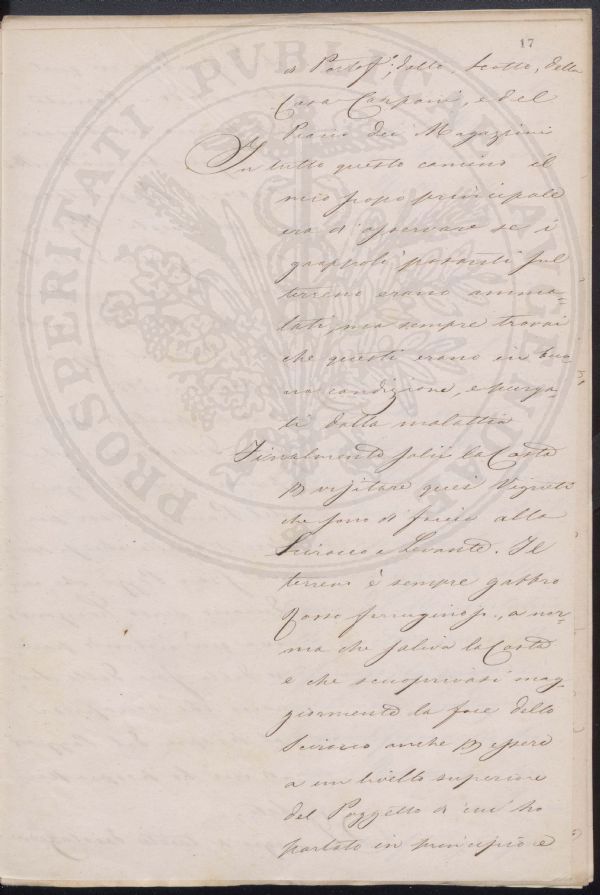 17
a Portof.º; dello, Scotto, della
Casa Capponi, e del
Piano dei Magazzini
In tutto questo camino il
mio scopo principale
era d'osservare se i
grappoli posanti sul
terreno erano amma=
lati, ma sempre trovai
che questi erano in buo=
na condizione, e purga=
ti dalla malattia
Finalmente salii la Costa
p visitare quei Vigneti
che sono di faccia allo
Scirocco e Levante. Il
terreno è sempre gabbro
rosso ferruginos., a nor=
ma che saliva la Costa
e che scuoprivasi mag=
giormente la foce dello
Scirocco anche p essere
a un livello superiore
del Poggetto di cui ho
parlato in principio e
PROSPERITATI PVBLICAE AVGENDAE